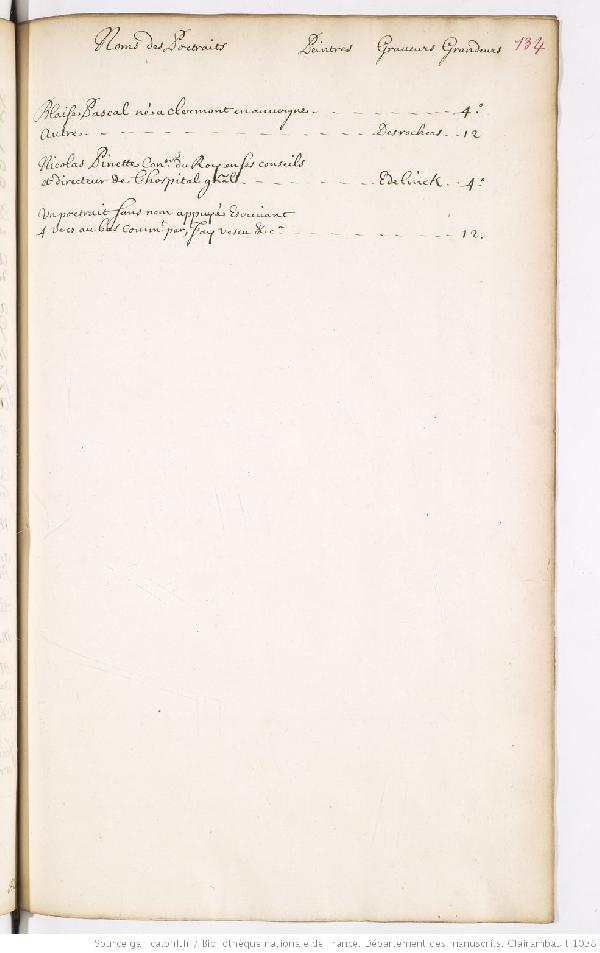 Noms des Portraits Peintres Graueurs Grandeurs 134
Blaise Pascal né a clermont en auuergne - - - - - - - 4°
autre - - - - - - - - - - Desrochers - - 12
Nicolas Pinette Con.er du Roy en ses conseils
et directeur de lhospital gñall - - - - - - Edelinck - - 4°
Vn portrait sans nom appuyé Escriuant
4 vers au bas comm.t par, J'ay vescu &c.a - - - - - - - 12.
Source gallica.bnf.fr / Bibliothèque nationale de France. Département des manuscrits. Clairambault 1038